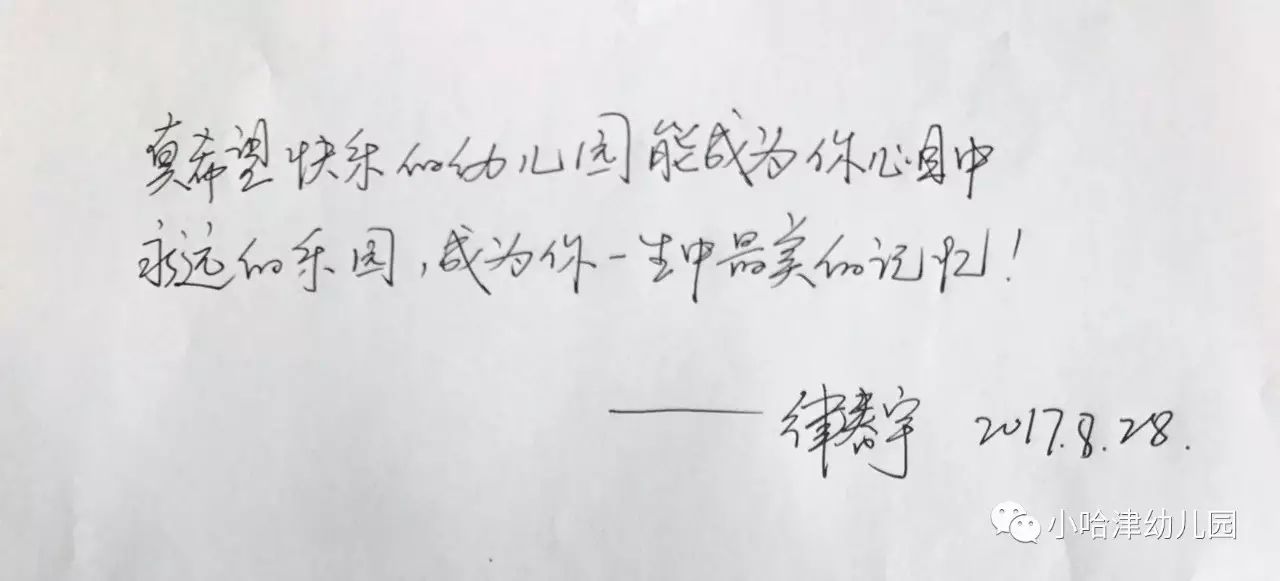 真希望快乐的幼儿园能成为你心目中
永远的乐园,成为你一生中最美的记忆!
——律春宇 2017.8.28.
小哈津幼儿园